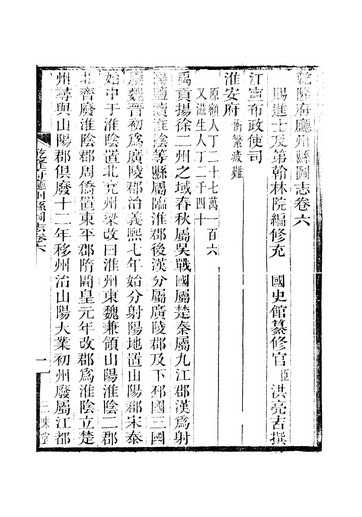 乾隆府廳州縣圖志卷六
賜進士及第翰林院編修充 國史館纂修官臣洪亮吉撰
江寧布政使司
淮安府衝繁疲難
原額人丁二十七萬一百六
又滋生人丁二千四十
禹貢揚徐二州之域春秋屬吳戰國屬楚秦屬九江郡漢爲射
陽鹽瀆淮陰等縣屬臨淮郡後漢分屬廣陵郡及下邳國三國
屬魏晉初爲廣陵郡治義熙七年始分射陽地置山陽郡宋泰
始中于淮陰置北兗州梁改曰淮州東魏兼領山陽淮陰二郡
北齊廢淮陰郡周僑置東平郡隋開皇元年改郡爲淮陰立楚
州尋與山陽郡俱廢十二年移州治山陽大業初州廢屬江都
乾隆府廳州縣圖志卷六
一